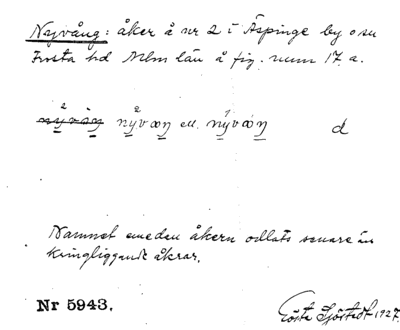 Nyvång: åker å nr 2 i Äspinge by o sn
Frosta hd Mlm län å fig. num 17. a.
nývæŋ el. nývæŋ d
Namnet emedan åkern odlats senare än
kringliggande åkrar.
Nr 5943.
Gösta Sjöstedt 1927.